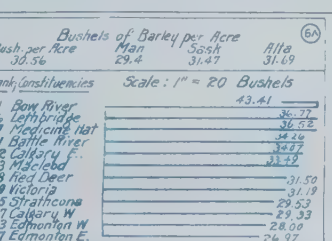 6A
Bushels of Barley per Acre
ush. per Acre Man Sask Alta
30.56 29.4 31.47 31.69
ank; Constituencies Scale: 1" = 20 Bushels
Bow River 43.41
Lethbridge 36.77
Medicine Hat 36.52
Battle River
2 Calgary E.
3 Macleod 33.49
Red Deer 31.50
Victoria 31.19
5 Strathcona 29.53
7 Calgary W 29.33
3 Edmonton W 28.00
7 Edmonton E. 26.97